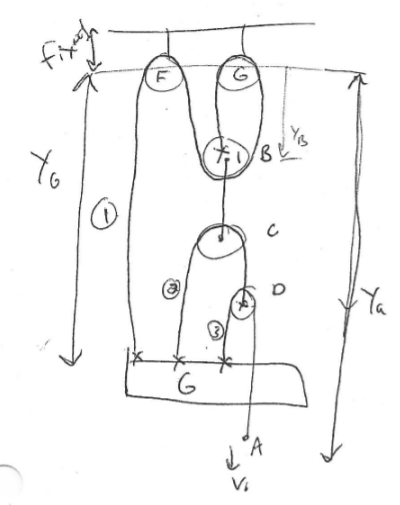 Fixed
F G
Y_B
Y_G
1 B
①
C
② D
③ Y_a
G
A
V₁